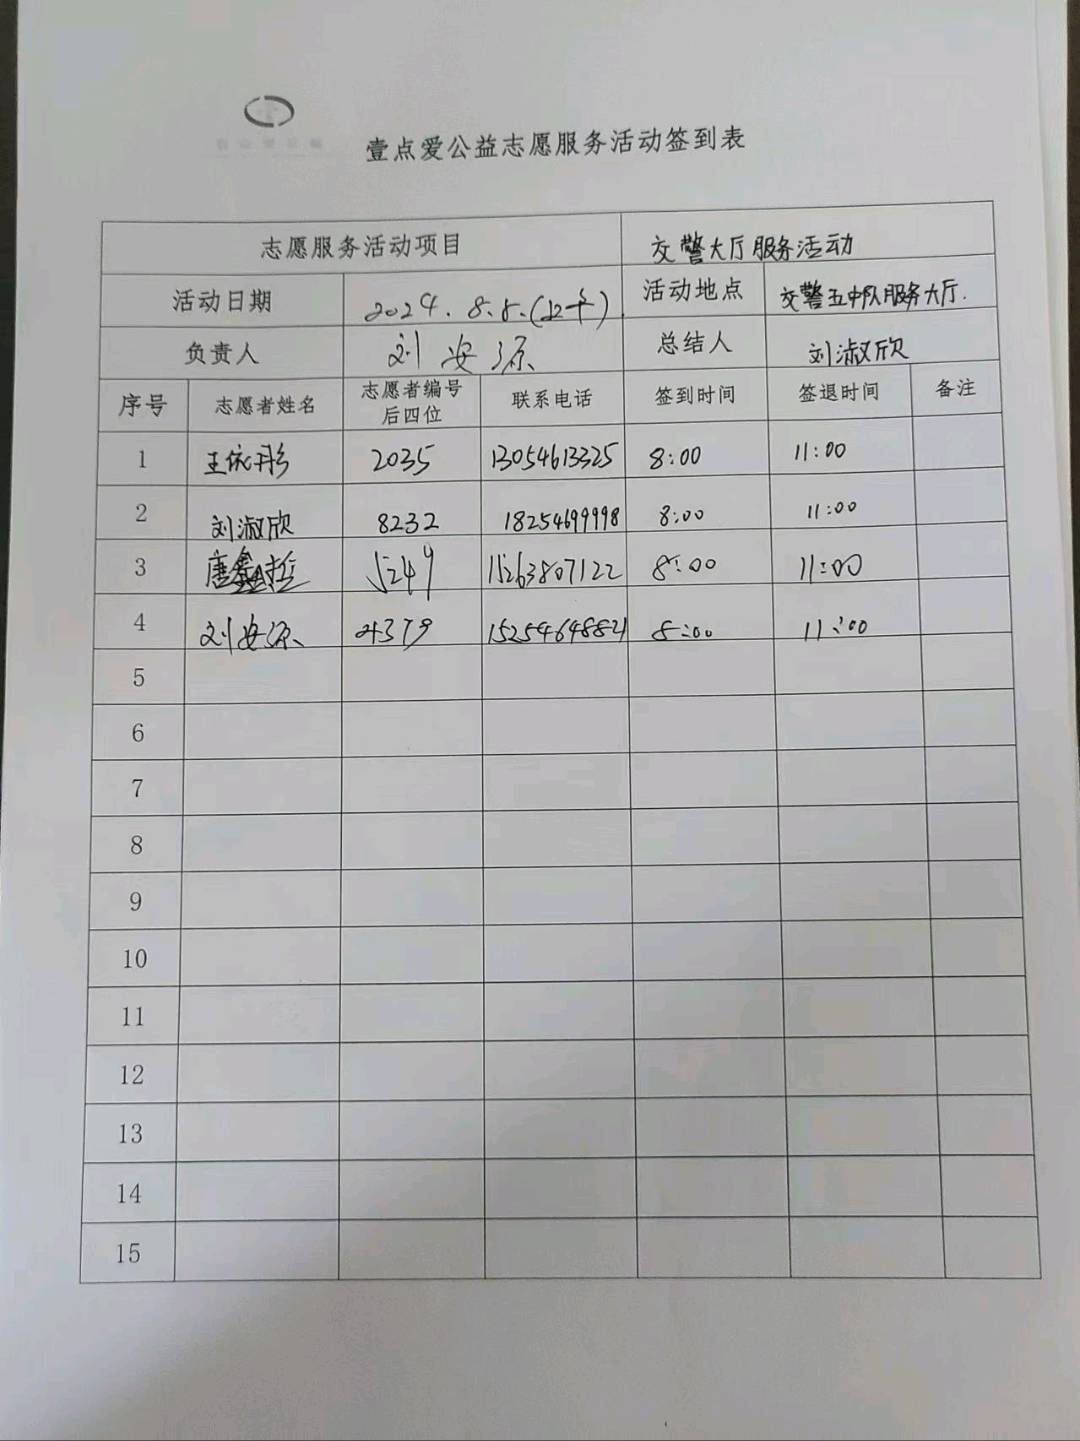 壹点爱公益志愿服务活动签到表
志愿服务活动项目 交警大厅服务活动
活动日期 2024.8.8.(上午) 活动地点 交警五中队服务大厅.
负责人 刘安源 总结人 刘淑欣
序号 志愿者姓名 志愿者编号后四位 联系电话 签到时间 签退时间 备注
1 王依彤 2035 13054613325 8:00 11:00
2 刘淑欣 8232 18254699998 8:00 11:00
3 唐 5249 15263807122 8:00 11:00
4 刘安源 15254648821 8:00 11:00
5
6
7
8
9
10
11
12
13
14
15